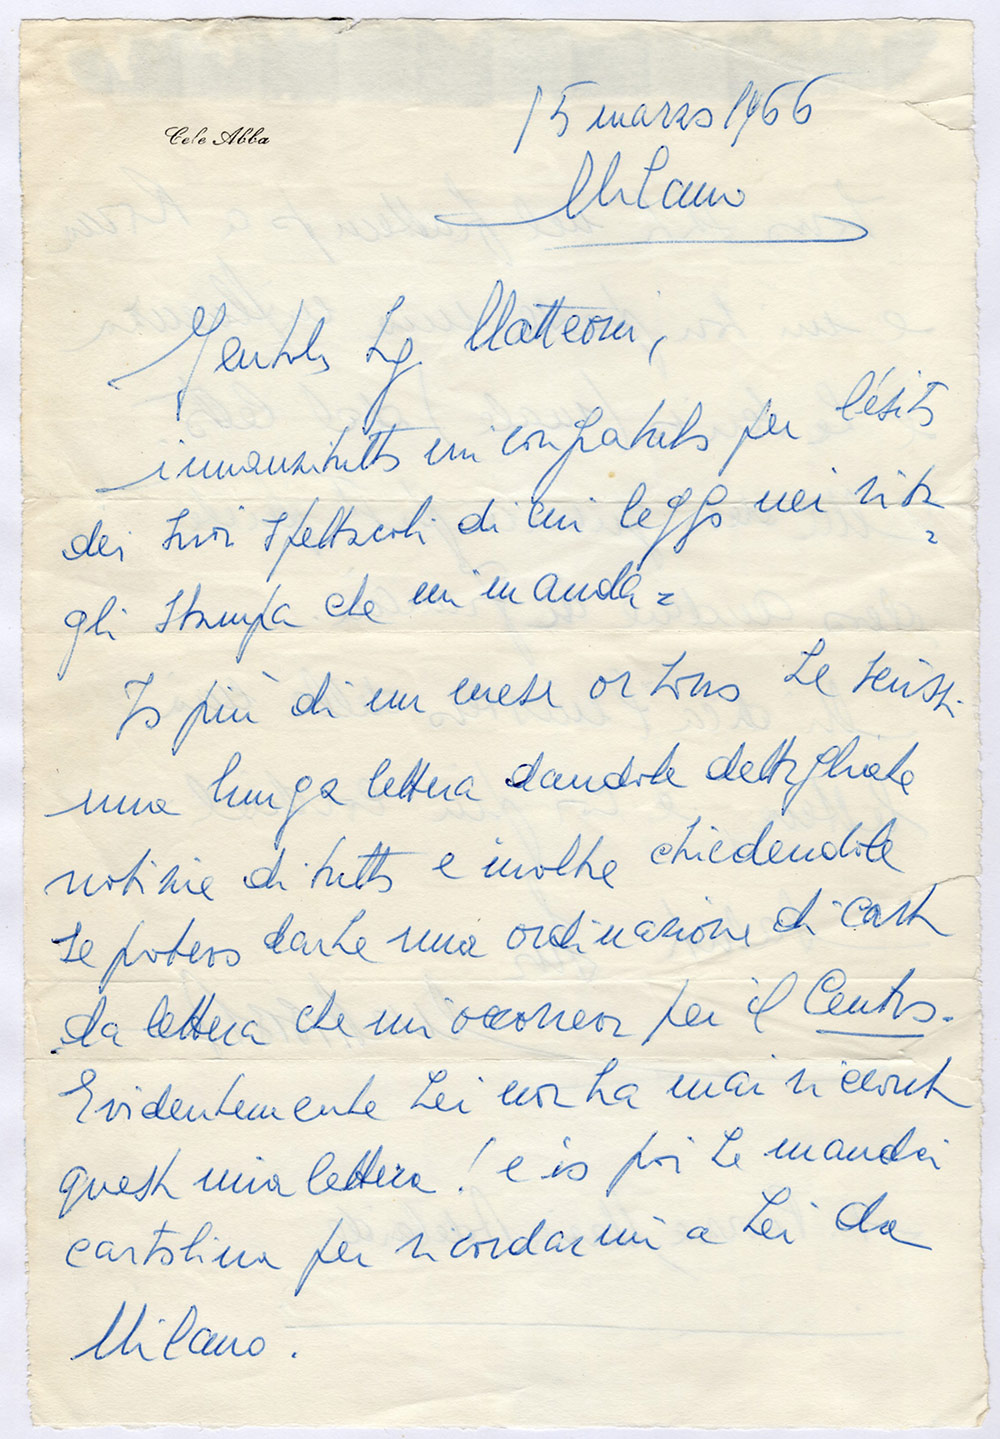 Cele Abba
15 marzo 1966
Milano
Gentile Sig. Matteoni,
innanzitutto mi congratulo per l'ésito
dei Suoi Spettacoli di cui leggo nei rita=
gli Stampa che mi manda=
Io più di un mese or sono Le scrissi
una lunga lettera dandole dettagliate
notizie di tutto e inoltre chiedendole
se potevo darLe una ordinazione di carta
da lettera che mi occorreva per il Centro.
Evidentemente Lei non ha mai ricevuto
questa mia lettera! e io poi Le mandai
cartolina per ricordarmi a Lei da
Milano.